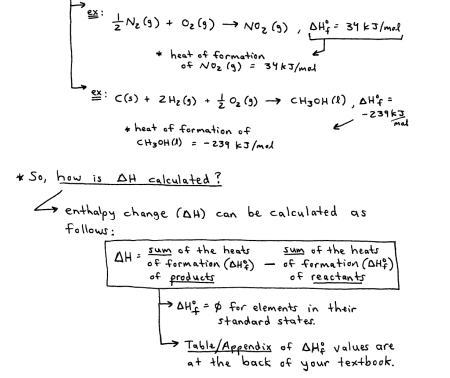 ex: ½ N₂(g) + O₂(g) → NO₂(g), ΔH°f = 34 kJ/mol
* heat of formation
of NO₂(g) = 34 kJ/mol
ex: C(s) + 2H₂(g) + ½ O₂(g) → CH₃OH(l), ΔH°f =
-239 kJ/mol
* heat of formation of
CH₃OH(l) = -239 kJ/mol
* So, how is ΔH calculated?
→ enthalpy change (ΔH) can be calculated as
follows:
ΔH = sum of the heats of formation (ΔH°f) of products − sum of the heats of formation (ΔH°f) of reactants
→ ΔH°f = ∅ for elements in their
standard states.
→ Table/Appendix of ΔH°f values are
at the back of your textbook.